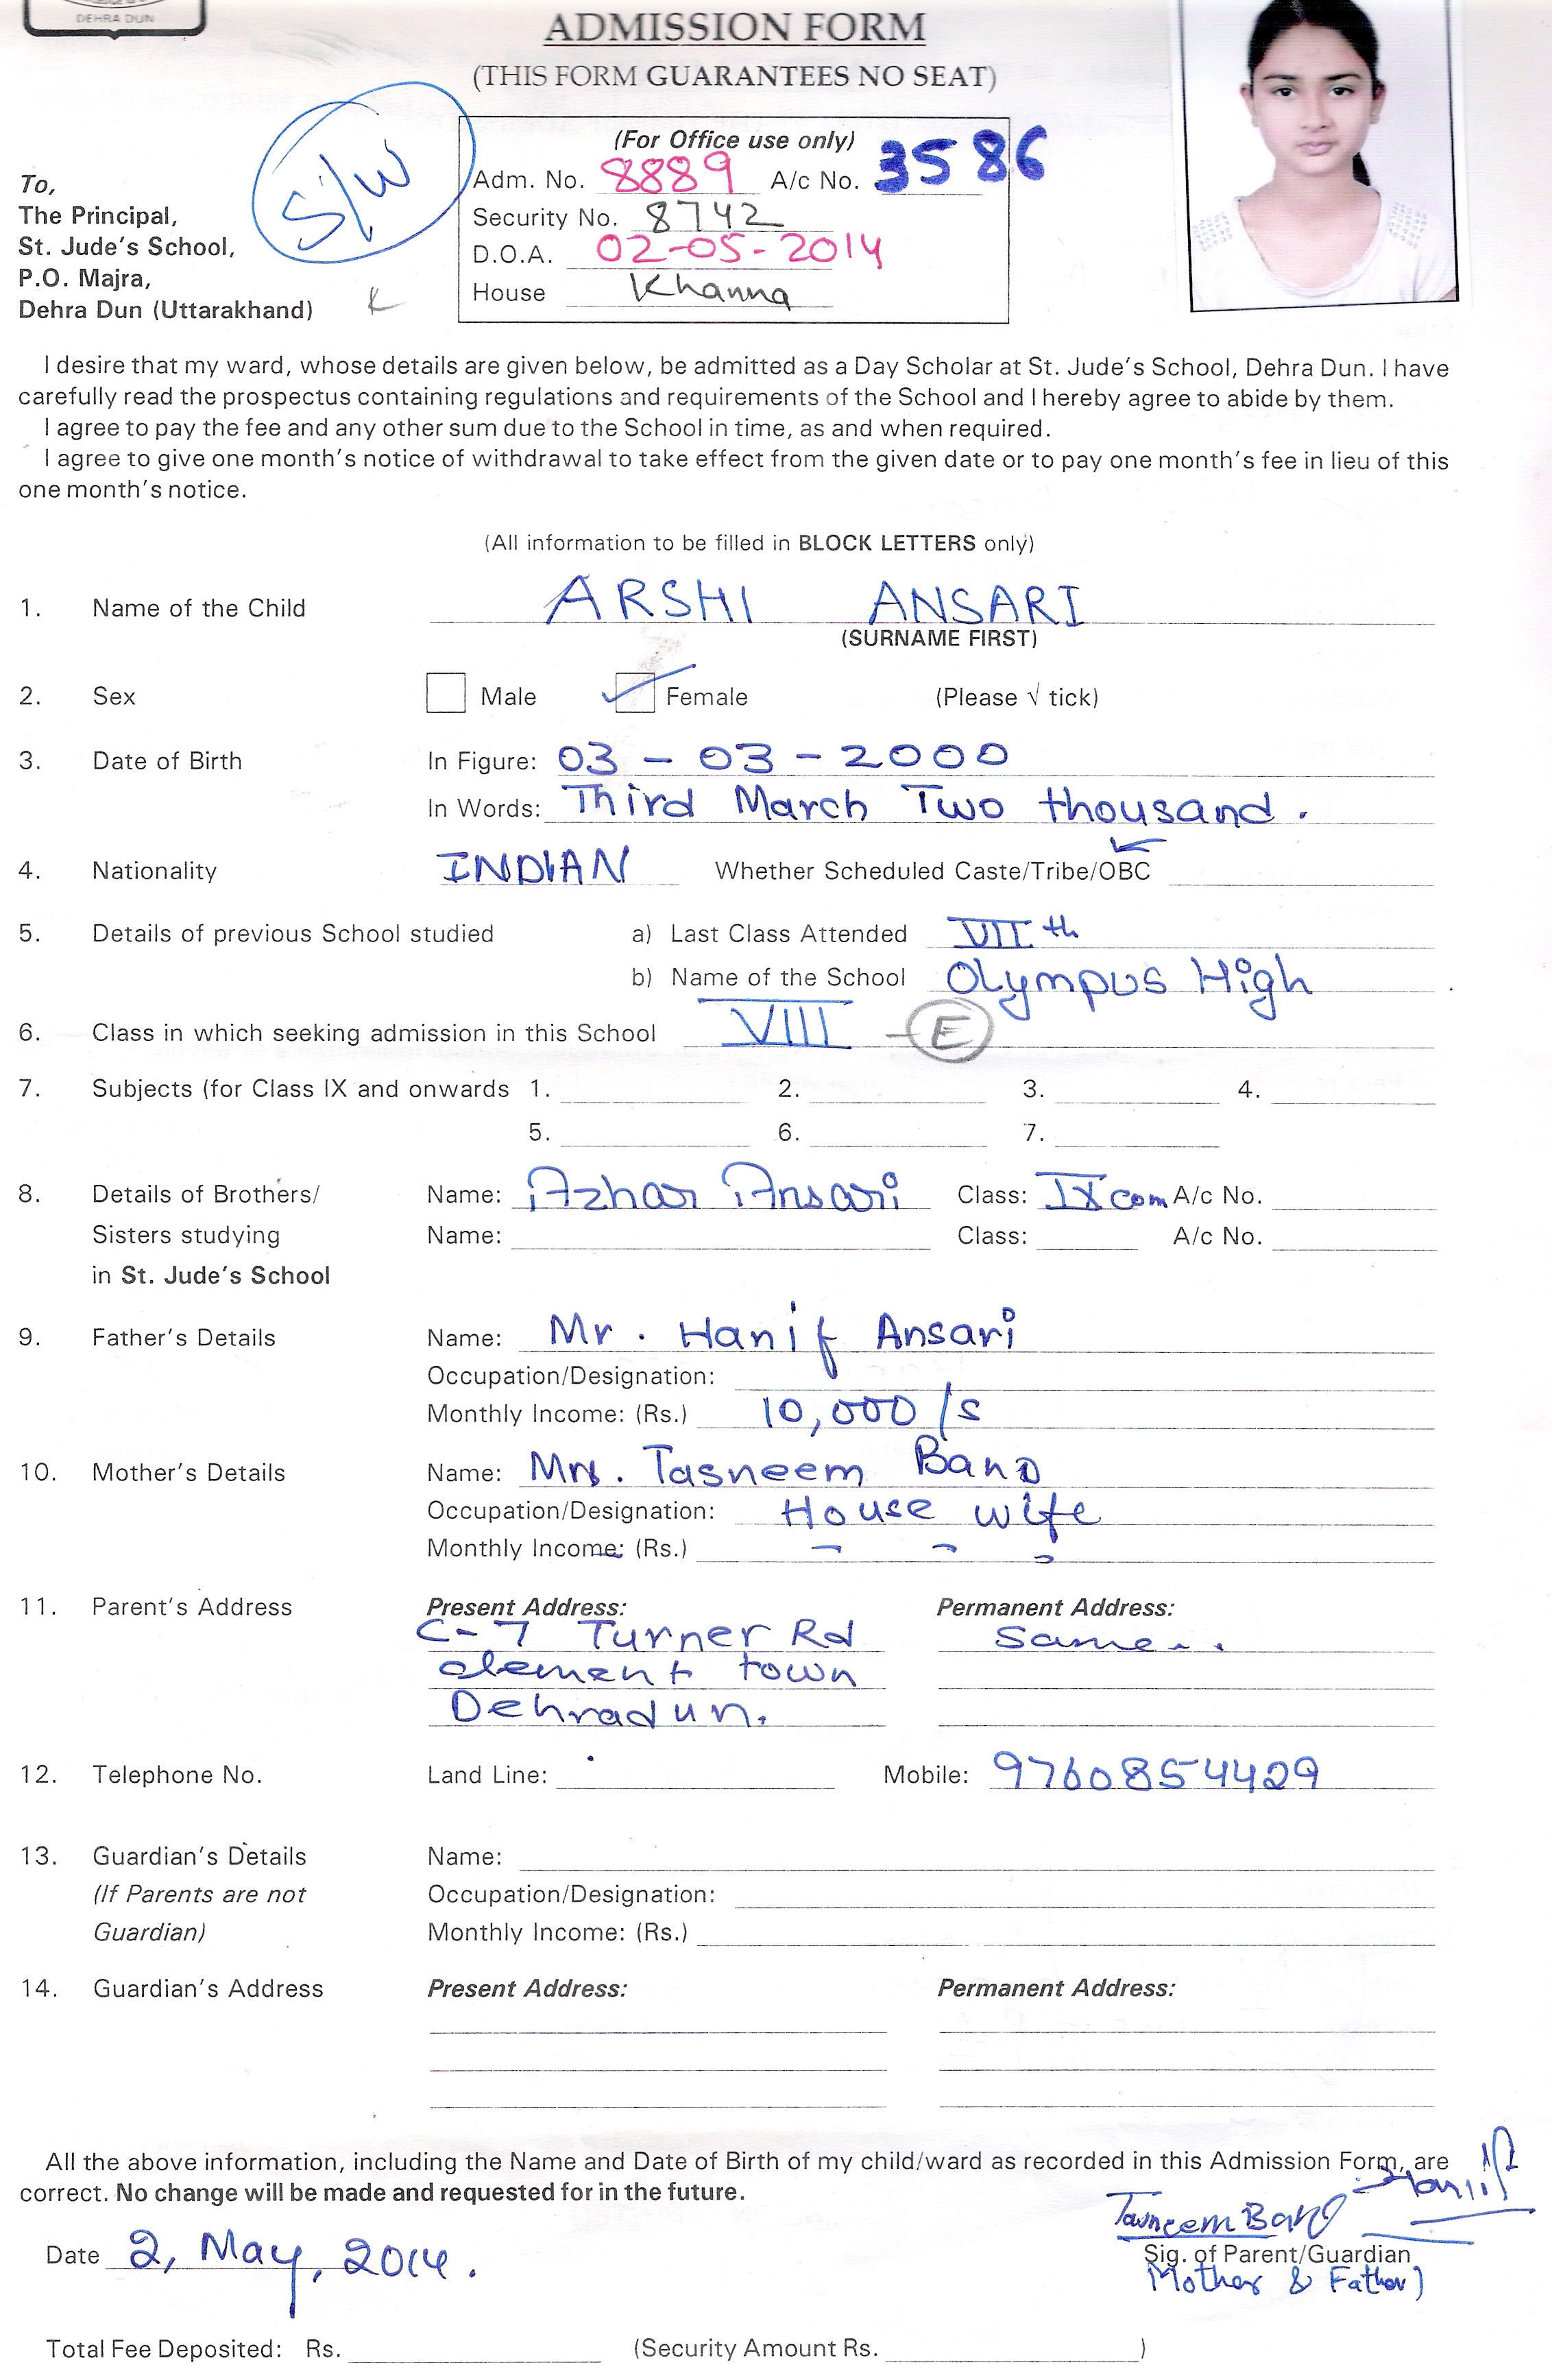 DEHRA DUN
ADMISSION FORM
(THIS FORM GUARANTEES NO SEAT)
S/W
(For Office use only)
Adm. No. 8889 A/c No. 3586
Security No. 8742
D.O.A. 02-05-2014
House Khanna
To,
The Principal,
St. Jude's School,
P.O. Majra,
Dehra Dun (Uttarakhand)
K
I desire that my ward, whose details are given below, be admitted as a Day Scholar at St. Jude's School, Dehra Dun. I have
carefully read the prospectus containing regulations and requirements of the School and I hereby agree to abide by them.
I agree to pay the fee and any other sum due to the School in time, as and when required.
I agree to give one month's notice of withdrawal to take effect from the given date or to pay one month's fee in lieu of this
one month's notice.
(All information to be filled in BLOCK LETTERS only)
1. Name of the Child ARSHI ANSARI
(SURNAME FIRST)
2. Sex Male Female (Please √ tick)
3. Date of Birth In Figure: 03 - 03 - 2000
In Words: Third March Two thousand.
4. Nationality INDIAN Whether Scheduled Caste/Tribe/OBC
5. Details of previous School studied a) Last Class Attended VIIth
b) Name of the School Olympus High
6. Class in which seeking admission in this School VIII - E
7. Subjects (for Class IX and onwards 1. 2. 3. 4.
5. 6. 7.
8. Details of Brothers/ Name: Azhar Ansari Class: IX com A/c No.
Sisters studying Name: Class: A/c No.
in St. Jude's School
9. Father's Details Name: Mr. Hanif Ansari
Occupation/Designation:
Monthly Income: (Rs.) 10,000/s
10. Mother's Details Name: Mrs. Tasneem Bano
Occupation/Designation: House wife
Monthly Income: (Rs.) - - -
11. Parent's Address Present Address: Permanent Address:
C-7 Turner Rd Same..
clement town
Dehradun.
12. Telephone No. Land Line: Mobile: 9760854429
13. Guardian's Details Name:
(If Parents are not Occupation/Designation:
Guardian) Monthly Income: (Rs.)
14. Guardian's Address Present Address: Permanent Address:
All the above information, including the Name and Date of Birth of my child/ward as recorded in this Admission Form, are
correct. No change will be made and requested for in the future.
Tasneem Bano Hanif
Date 2, May, 2014. Sig. of Parent/Guardian
Mother & Father)
Total Fee Deposited: Rs. (Security Amount Rs. )